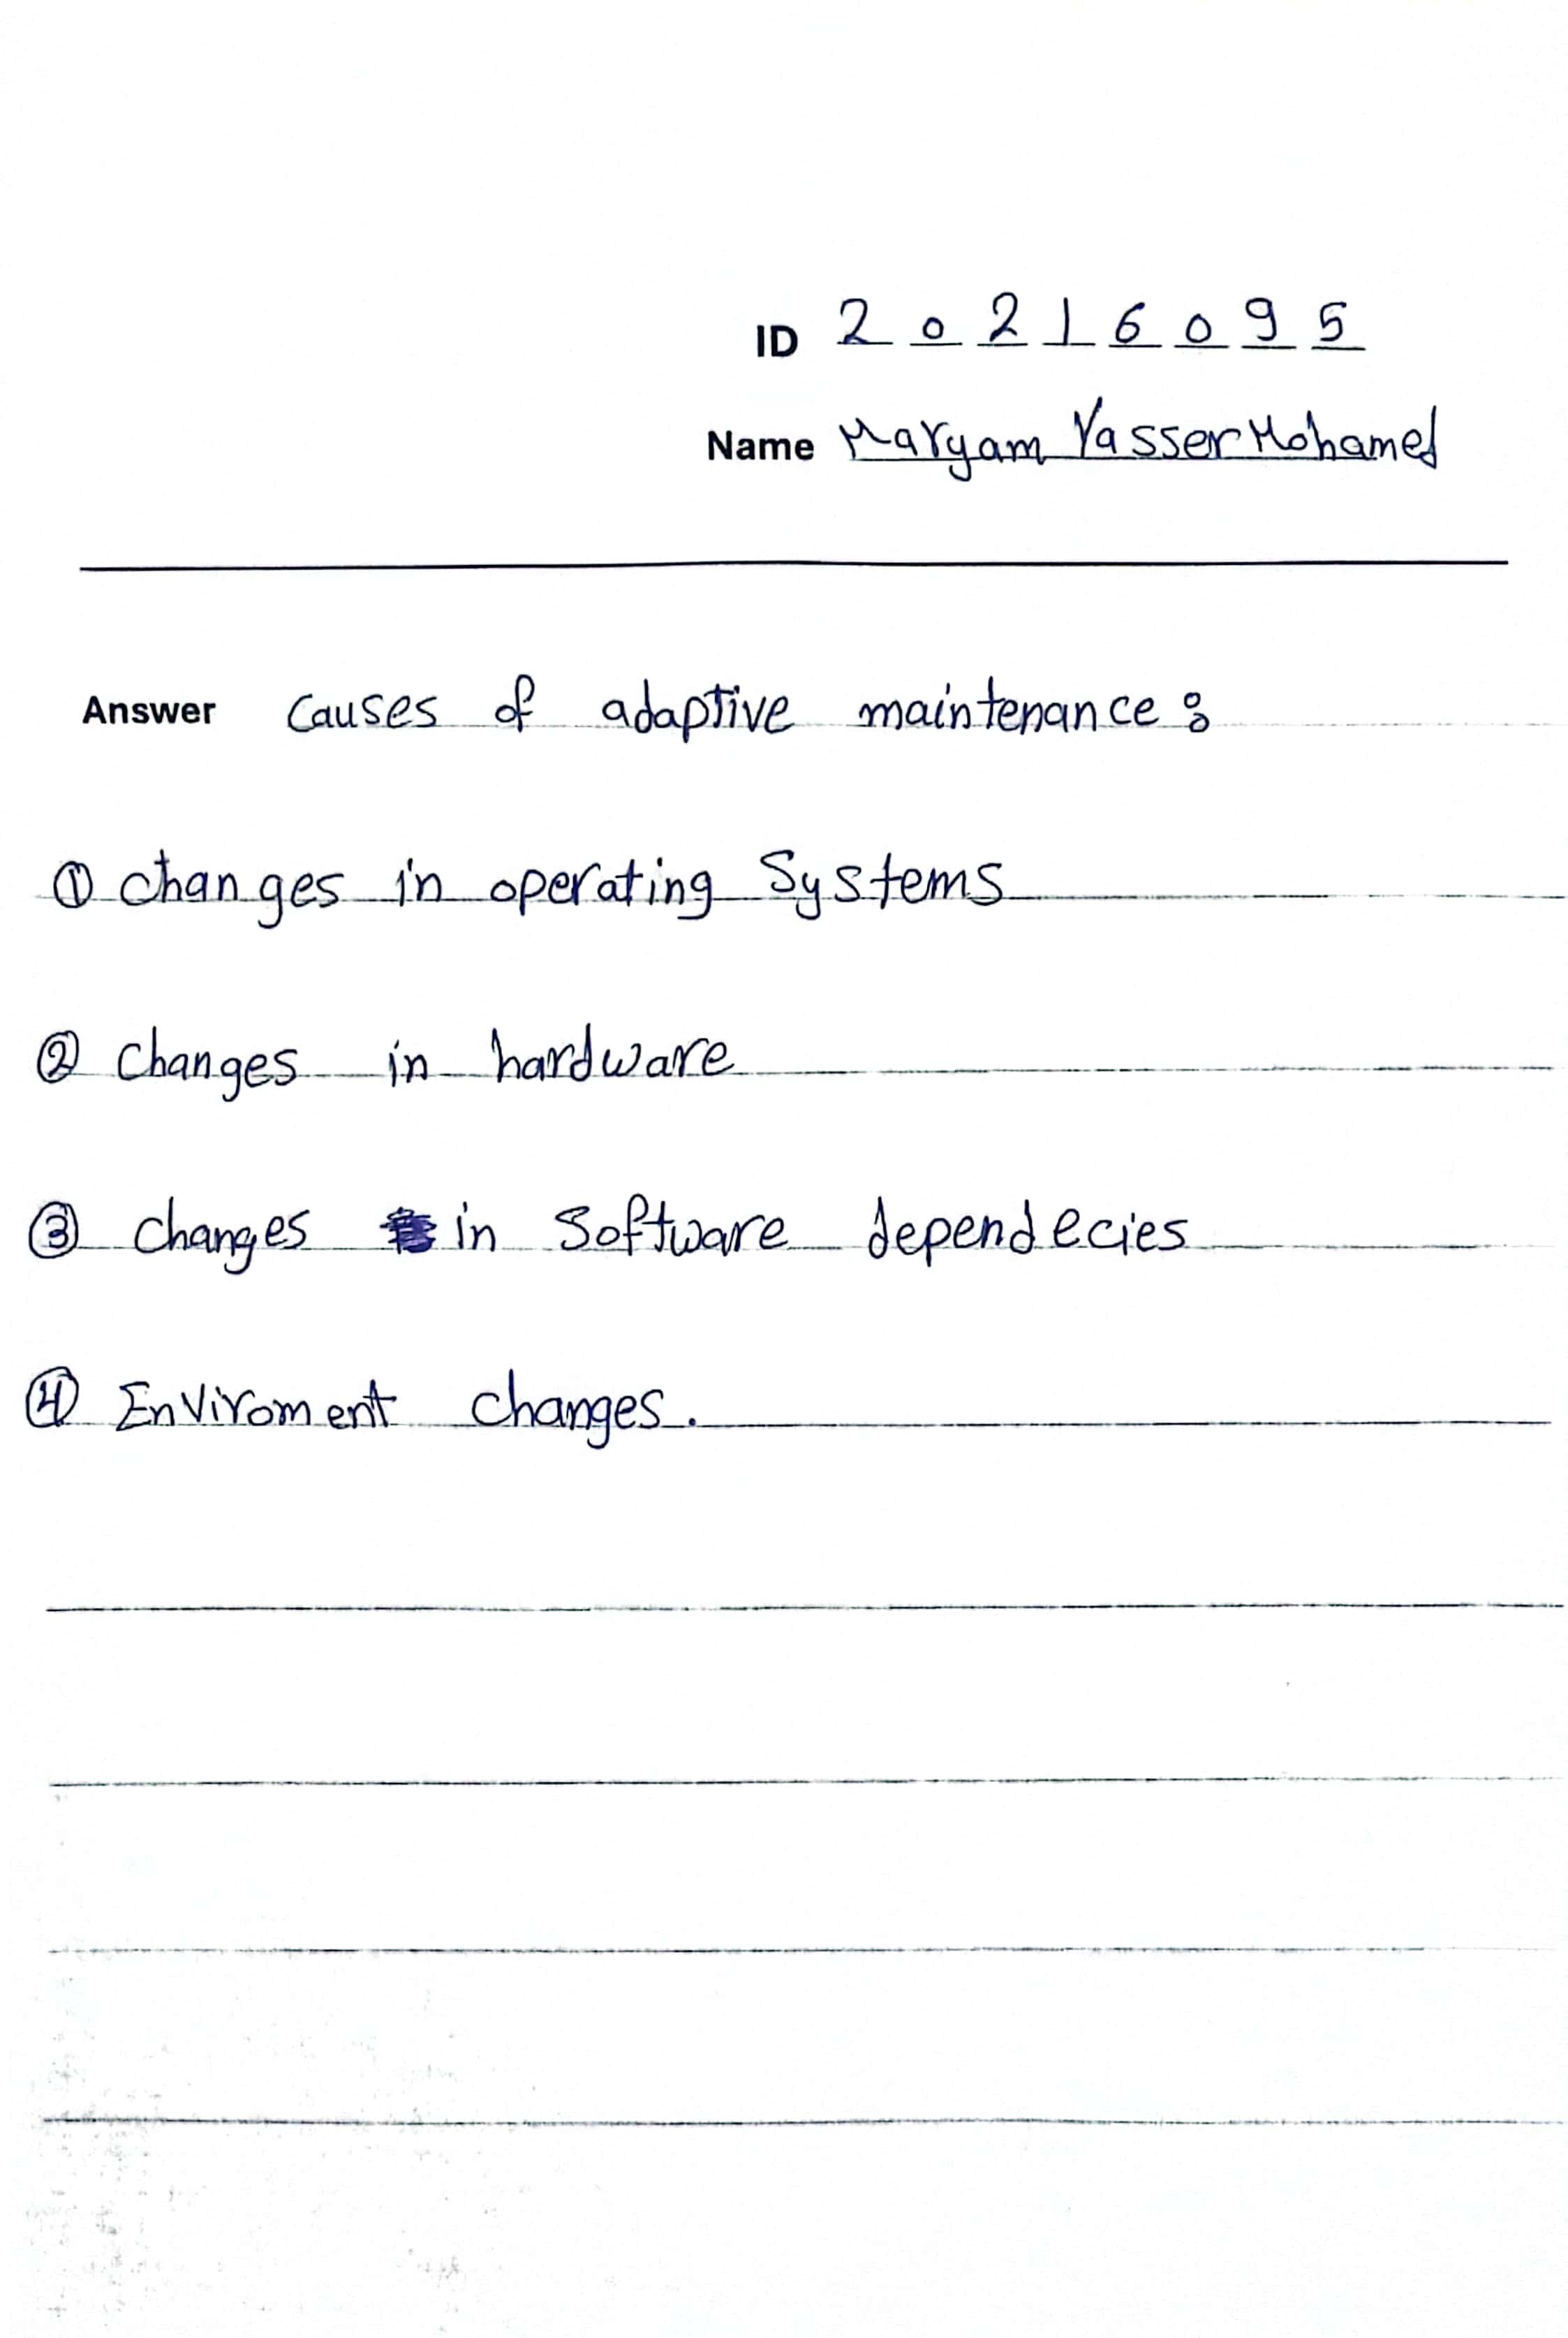 ID 2 0 2 1 6 0 9 5
Name Maryam Yasser Mohamed
Answer Causes of adaptive maintenance :
① changes in operating Systems
② Changes in hardware
③ changes in Software dependecies
④ Enviroment changes.